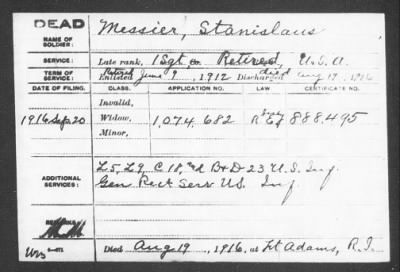 DEAD
NAME OF SOLDIER: Messier, Stanislaus
SERVICE: Late rank, 1 Sgt Retired, U.S.A.
TERM OF SERVICE: Retired Enlisted June 9, 1912 Discharged died Aug 19, 1916
DATE OF FILING. CLASS. APPLICATION NO. LAW CERTIFICATE NO.
Invalid,
1916 Sep. 20 Widow, 1,074,682 888,495
Minor,
ADDITIONAL SERVICES: L 5, L 9, C 18, and B & D 23 U.S. Inf.
Gen Rect Serv U.S. Inf.
REMARKS:
Died Aug 19, 1916, at Ft Adams, R.I.